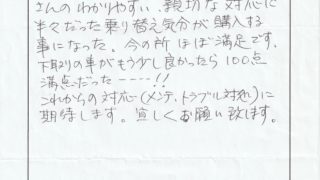 さんのわかりやすい、親切な対応に
半々だった乗り替え気分が購入する
事になった。今の所ほぼ満足です。
下取りの車がもう少し良かったら100点
満点だった----!!
これからの対応(メンテ、トラブル対処)に
期待します。宜しくお願い致します。